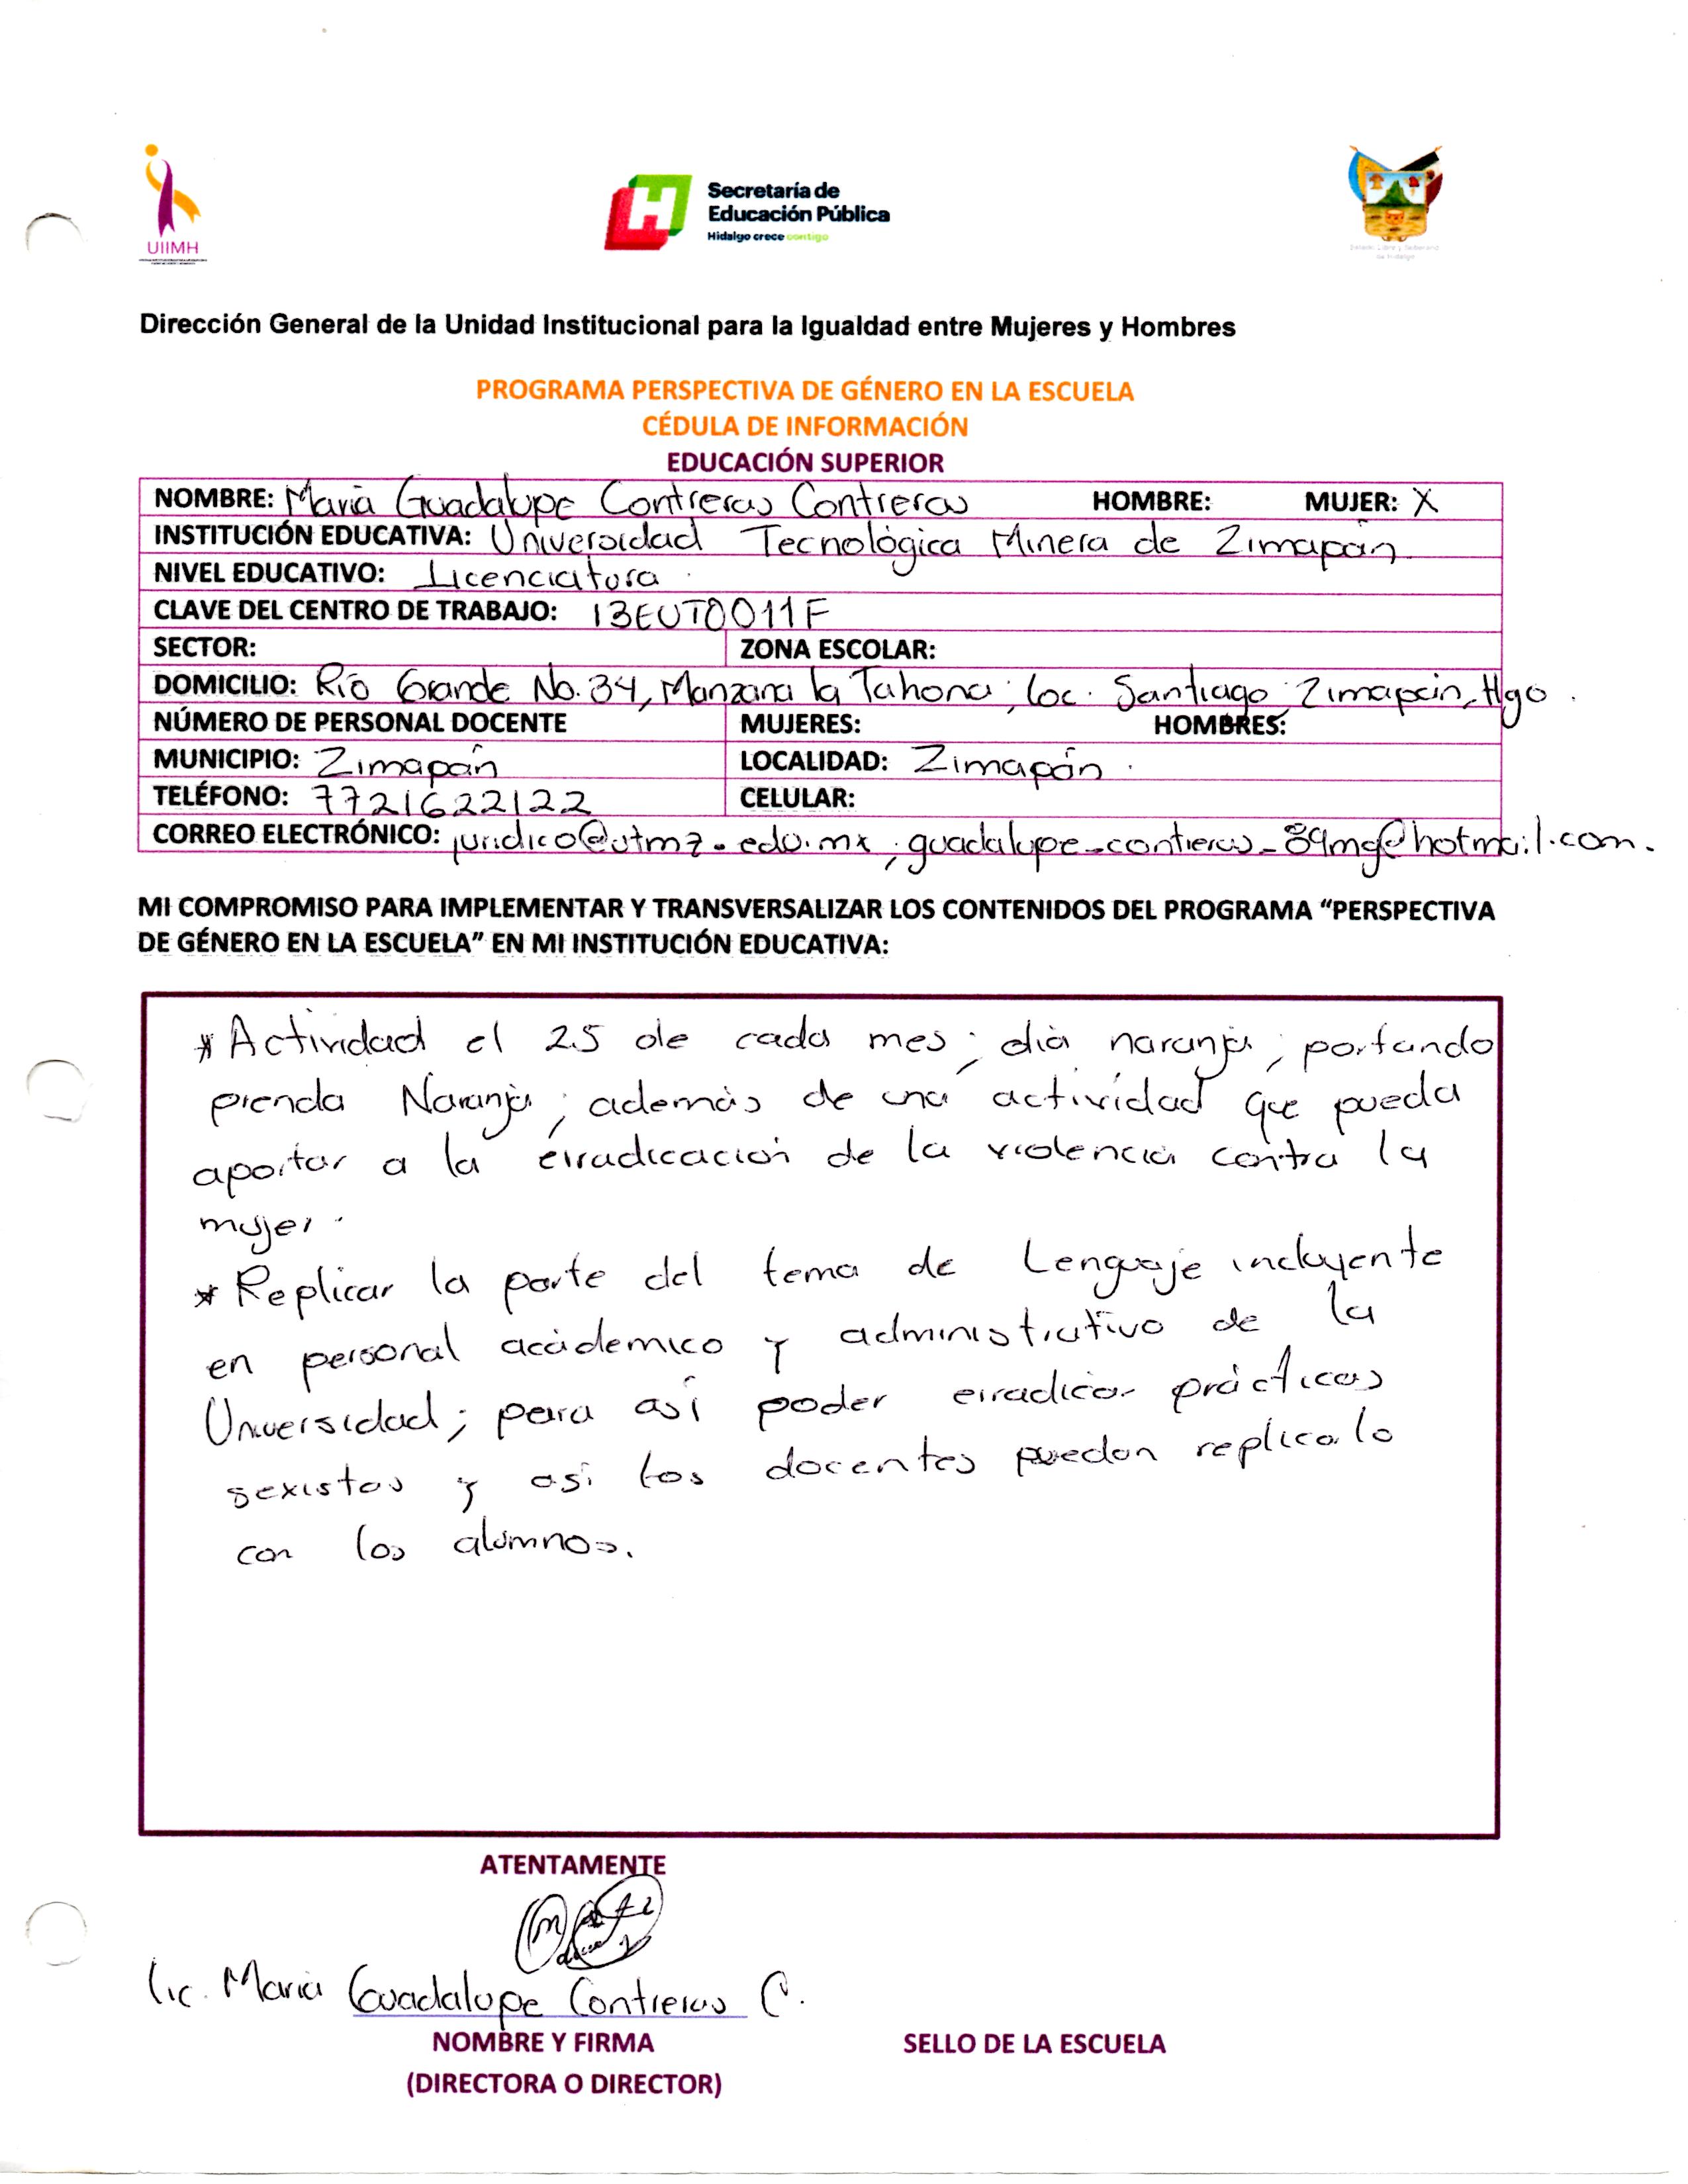 UIIMH
Secretaría de
Educación Pública
Hidalgo crece contigo
Estado Libre y Soberano
de Hidalgo
Dirección General de la Unidad Institucional para la Igualdad entre Mujeres y Hombres
PROGRAMA PERSPECTIVA DE GÉNERO EN LA ESCUELA
CÉDULA DE INFORMACIÓN
EDUCACIÓN SUPERIOR
NOMBRE: María Guadalupe Contreras Contreras HOMBRE: MUJER: X
INSTITUCIÓN EDUCATIVA: Universidad Tecnológica Minera de Zimapán
NIVEL EDUCATIVO: Licenciatura.
CLAVE DEL CENTRO DE TRABAJO: 13EUT0011F
SECTOR: ZONA ESCOLAR:
DOMICILIO: Río Grande No. 34, Manzana la Tahona; loc. Santiago; Zimapán, Hgo.
NÚMERO DE PERSONAL DOCENTE MUJERES: HOMBRES:
MUNICIPIO: Zimapán LOCALIDAD: Zimapán.
TELÉFONO: 7721622122 CELULAR:
CORREO ELECTRÓNICO: juridico@utmz.edu.mx; guadalupe_contreras_89mg@hotmail.com.
MI COMPROMISO PARA IMPLEMENTAR Y TRANSVERSALIZAR LOS CONTENIDOS DEL PROGRAMA “PERSPECTIVA
DE GÉNERO EN LA ESCUELA” EN MI INSTITUCIÓN EDUCATIVA:
* Actividad el 25 de cada mes; día naranja; portando
prenda Naranja; además de una actividad que pueda
aportar a la erradicación de la violencia contra la
mujer.
* Replicar la parte del tema de Lenguaje incluyente
en personal académico y administrativo de la
Universidad; para así poder erradicar prácticas
sexistas y así los docentes puedan replicalo
con los alumnos.
ATENTAMENTE
Lic. María Guadalupe Contreras C.
NOMBRE Y FIRMA SELLO DE LA ESCUELA
(DIRECTORA O DIRECTOR)